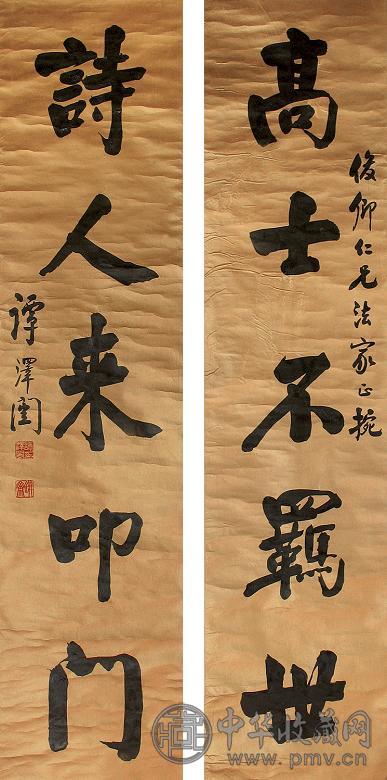 俊卿仁兄法家正捥
髙士不羈世
詩人来叩门
譚澤闓
中华收藏网
www.pmv.cn